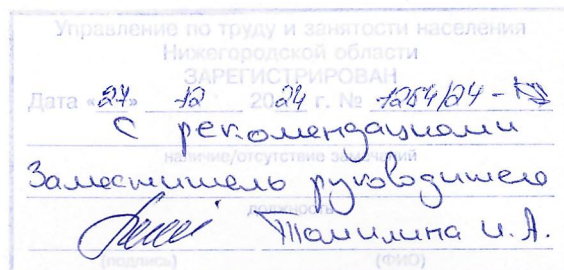 Управление по труду и занятости населения
Нижегородской области
ЗАРЕГИСТРИРОВАН
Дата «27» 12 2024 г. № 1264/24 -
с рекомендациями
наличие/отсутствие замечаний
Заместитель руководителя
должность
Томилина И.А.
(подпись) (ФИО)